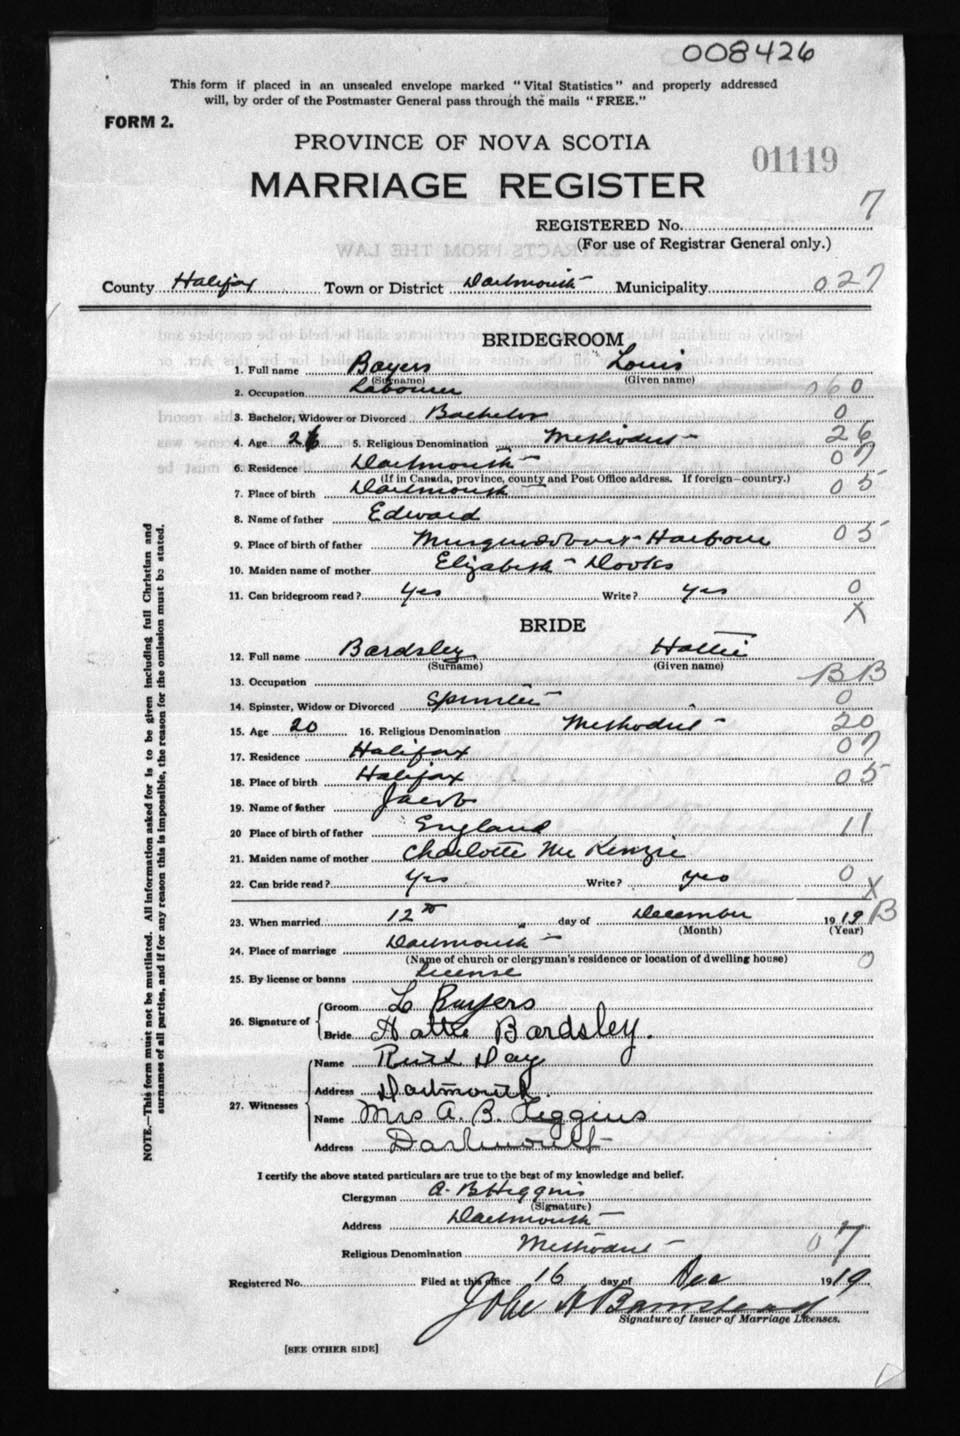 008426
This form if placed in an unsealed envelope marked "Vital Statistics" and properly addressed
will, by order of the Postmaster General pass through the mails "FREE."
FORM 2.
PROVINCE OF NOVA SCOTIA
01119
MARRIAGE REGISTER
7
REGISTERED No.
(For use of Registrar General only.)
County Halifax Town or District Dartmouth Municipality 027
BRIDEGROOM
1. Full name Bayers Louis
(Surname) (Given name)
2. Occupation Labourer 060
3. Bachelor, Widower or Divorced Bachelor 0
4. Age 26 5. Religious Denomination Methodist 26
6. Residence Dartmouth 07
(If in Canada, province, county and Post Office address. If foreign—country.)
7. Place of birth Dartmouth 05
8. Name of father Edward
9. Place of birth of father Musquodoboit Harbour 05
10. Maiden name of mother Elizabeth Dooks
11. Can bridegroom read? Yes Write? Yes 0
X
BRIDE
12. Full name Bardsley Hattie
(Surname) (Given name)
13. Occupation BB
14. Spinster, Widow or Divorced Spinster 0
15. Age 20 16. Religious Denomination Methodist 20
17. Residence Halifax 07
18. Place of birth Halifax 05
19. Name of father Jacob
20 Place of birth of father England 11
21. Maiden name of mother Charlotte McKenzie
22. Can bride read? Yes Write? Yes 0 X
23. When married 12th day of December 1919 B
(Month) (Year)
24. Place of marriage Dartmouth
(Name of church or clergyman's residence or location of dwelling house) 0
25. By license or banns License
26. Signature of Groom L Bayers
Bride Hattie Bardsley.
27. Witnesses Name Ruth Day
Address Dartmouth.
Name Mrs A. B. Higgins
Address Dartmouth
I certify the above stated particulars are true to the best of my knowledge and belief.
Clergyman A. B Higgins
(Signature)
Address Dartmouth
Religious Denomination Methodist 07
Registered No. Filed at this office 16 day of Dec 1919
Signature of Issuer of Marriage Licenses.
[SEE OTHER SIDE]
NOTE.—This form must not be mutilated. All information asked for is to be given including full Christian and
surnames of all parties, and if for any reason this is impossible, the reason for the omission must be stated.